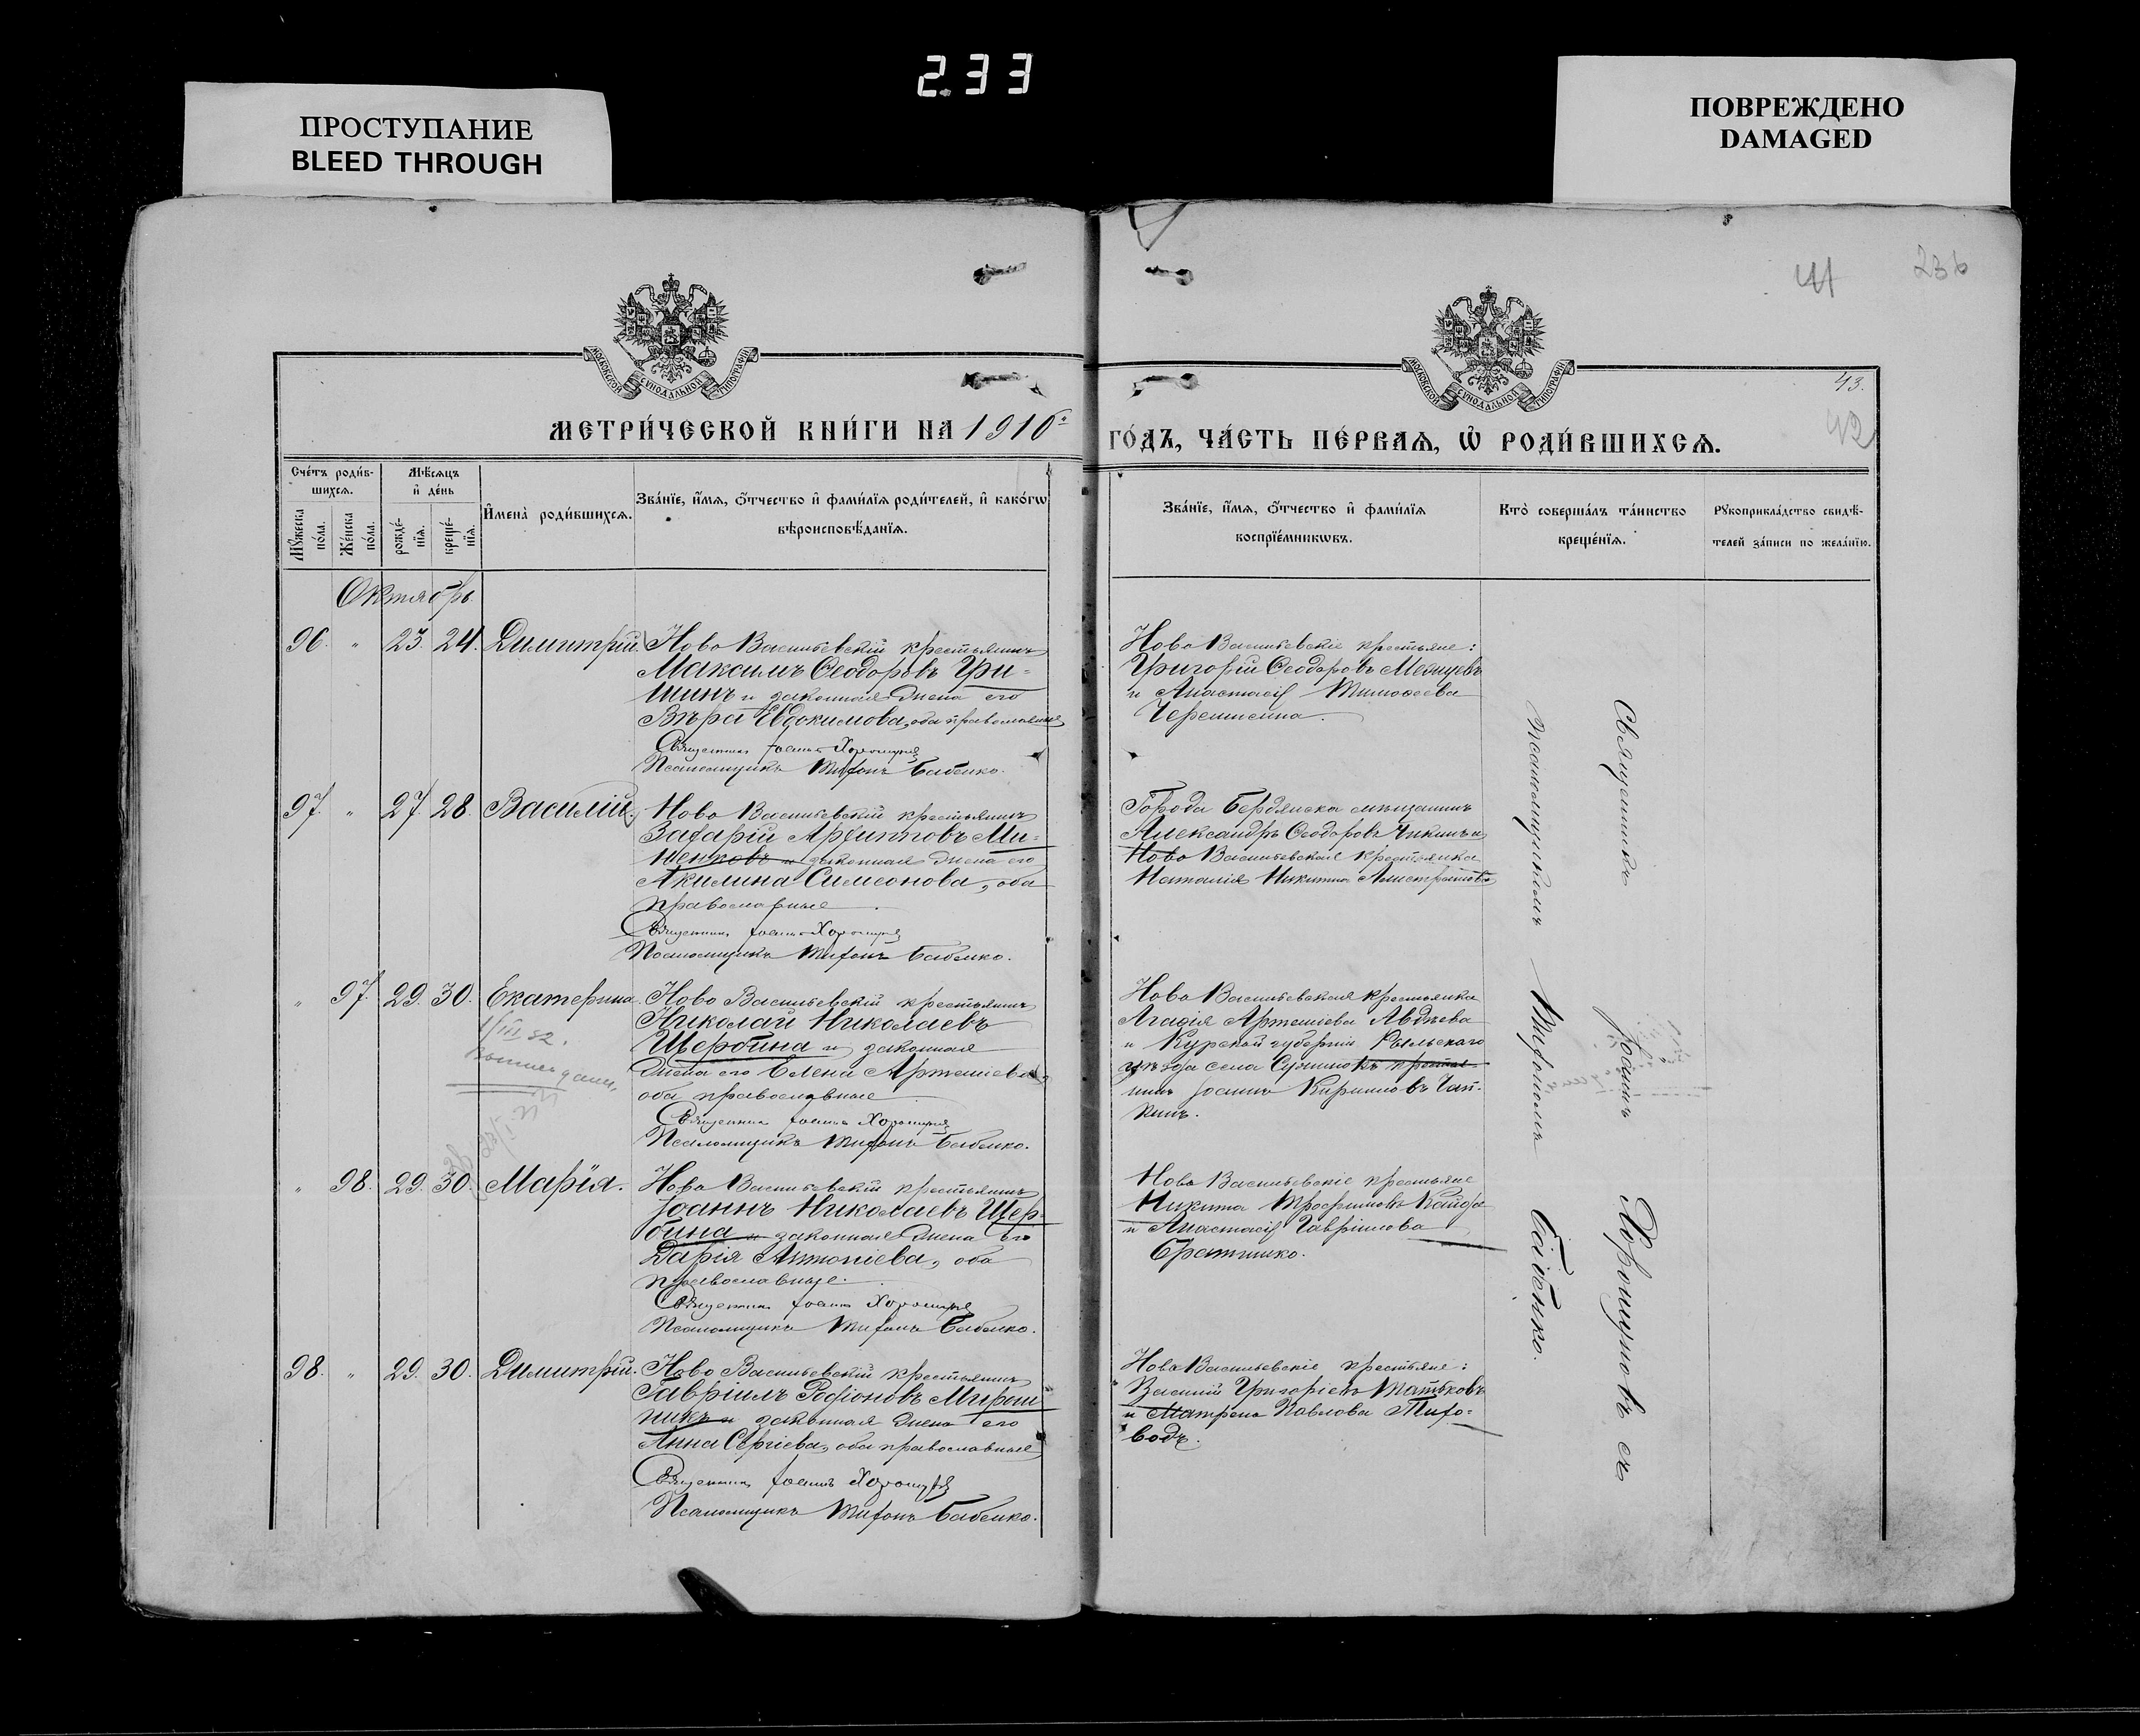 233
ПРОСТУПАНИЕ
BLEED THROUGH
ПОВРЕЖДЕНО
DAMAGED
41
236
МОСКОВСКОЙ СУНОДАЛЬНОЙ ТИПОГРАФІИ
МОСКОВСКОЙ СУНОДАЛЬНОЙ ТИПОГРАФІИ
43.
42
МЕТРИ́ЧЕСКОЙ КНИ́ГИ НА 1916 г.
ГО́ДЪ, ЧА́СТЬ ПЕ́РВАѦ, Ѡ҆ РОДИ́ВШИХСѦ.
Сче́тъ роди́в-
шихсѧ.
Мѣ́сѧцъ
и҆ де́нь
Мꙋ́жеска по́ла.
Же́нска по́ла.
рожде́-нїѧ.
креще́-нїѧ.
И҆мена̀ роди́вшихсѧ.
Зва́нїе, и҆́мѧ, ѻ҆́тчество и҆ фами́лїѧ роди́телей, и҆ како́гѡ
вѣроисповѣ́данїѧ.
Зва́нїе, и҆́мѧ, ѻ҆́тчество и҆ фами́лїѧ
воспрїе́мникѡвъ.
Кто̀ соверша́лъ та́инство
креще́нїѧ.
Рꙋкоприкла́дство свидѣ́-
телей за́писи по жела́нїю.
Октябрь.
96. " 23. 24. Димитрій.
Ново Васильевскій крестьянинъ
Максимъ Ѳеодоровъ Гри-
шинъ и законная жена его
Вѣра Евдокимова, оба православные
Священникъ Іоаннъ Хорошуновъ
Псаломщикъ Тихонъ Бабенко.
Ново Васильевскіе крестьяне:
Григорій Ѳеодоровъ
и Анастасія Тимоѳеева
97. " 27. 28. Василій.
Ново Васильевскій крестьянинъ
Захарій Архиповъ Ми-
щенковъ и законная жена его
Акилина Симеонова, оба
православные
Священникъ Іоаннъ Хорошуновъ
Псаломщикъ Тихонъ Бабенко.
Города Бердянска мѣщанинъ
Александръ Ѳеодоровъ Чикинъ и
Ново Васильевская крестьянка
Наталія Никитина
" 97. 29. 30. Екатерина.
1/III 52.
Ново Васильевскій крестьянинъ
Николай Николаевъ
Щербина и законная
жена его Елена Артеміева,
оба православные
Священникъ Іоаннъ Хорошуновъ
Псаломщикъ Тихонъ Бабенко.
Ново Васильевская крестьянка
Агафія Артеміева Авдѣева
и Курской губерніи Рыльскаго
уѣзда села крестья-
нинъ Іоаннъ Кирилловъ Чап-
кинъ.
" 98. 29. 30. Марія.
Ново Васильевскій крестьянинъ
Іоаннъ Николаевъ Щер-
бина и законная жена его
Дарія Антоніева, оба
православные.
Священникъ Іоаннъ Хорошуновъ
Псаломщикъ Тихонъ Бабенко.
Ново Васильевскіе крестьяне
Никита Трофимовъ Кайда
и Анастасія Гавріилова
Братишко.
98. " 29. 30. Димитрій.
Ново Васильевскій крестьянинъ
Гавріилъ Родіоновъ Мирош
никъ и законная жена его
Анна Сергіева, оба православные
Священникъ Іоаннъ Хорошуновъ
Псаломщикъ Тихонъ Бабенко.
Ново Васильевскіе крестьяне:
Василій Григоріевъ
и Матрена Павлова Тихо-
водъ.
Священникъ Іоаннъ Хорошуновъ съ
псаломщикомъ Тихономъ Бабенко.